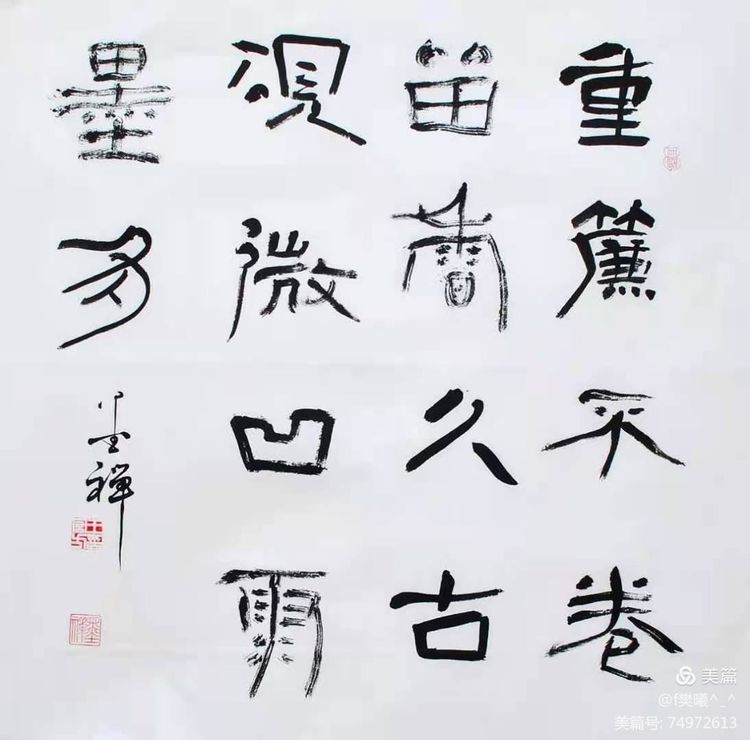 重簾不卷
留香久古
硯微凹
墨多
墨禪
美篇
@f樊曦^_^
美篇号: 74972613